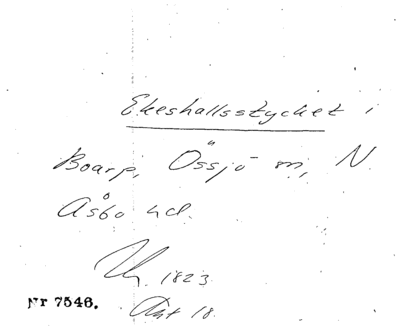 Ekeshallsstycket i
Boarp, Össjö sn, N.
Åsbo hd.
1823
Nr 7546.
Akt 18.